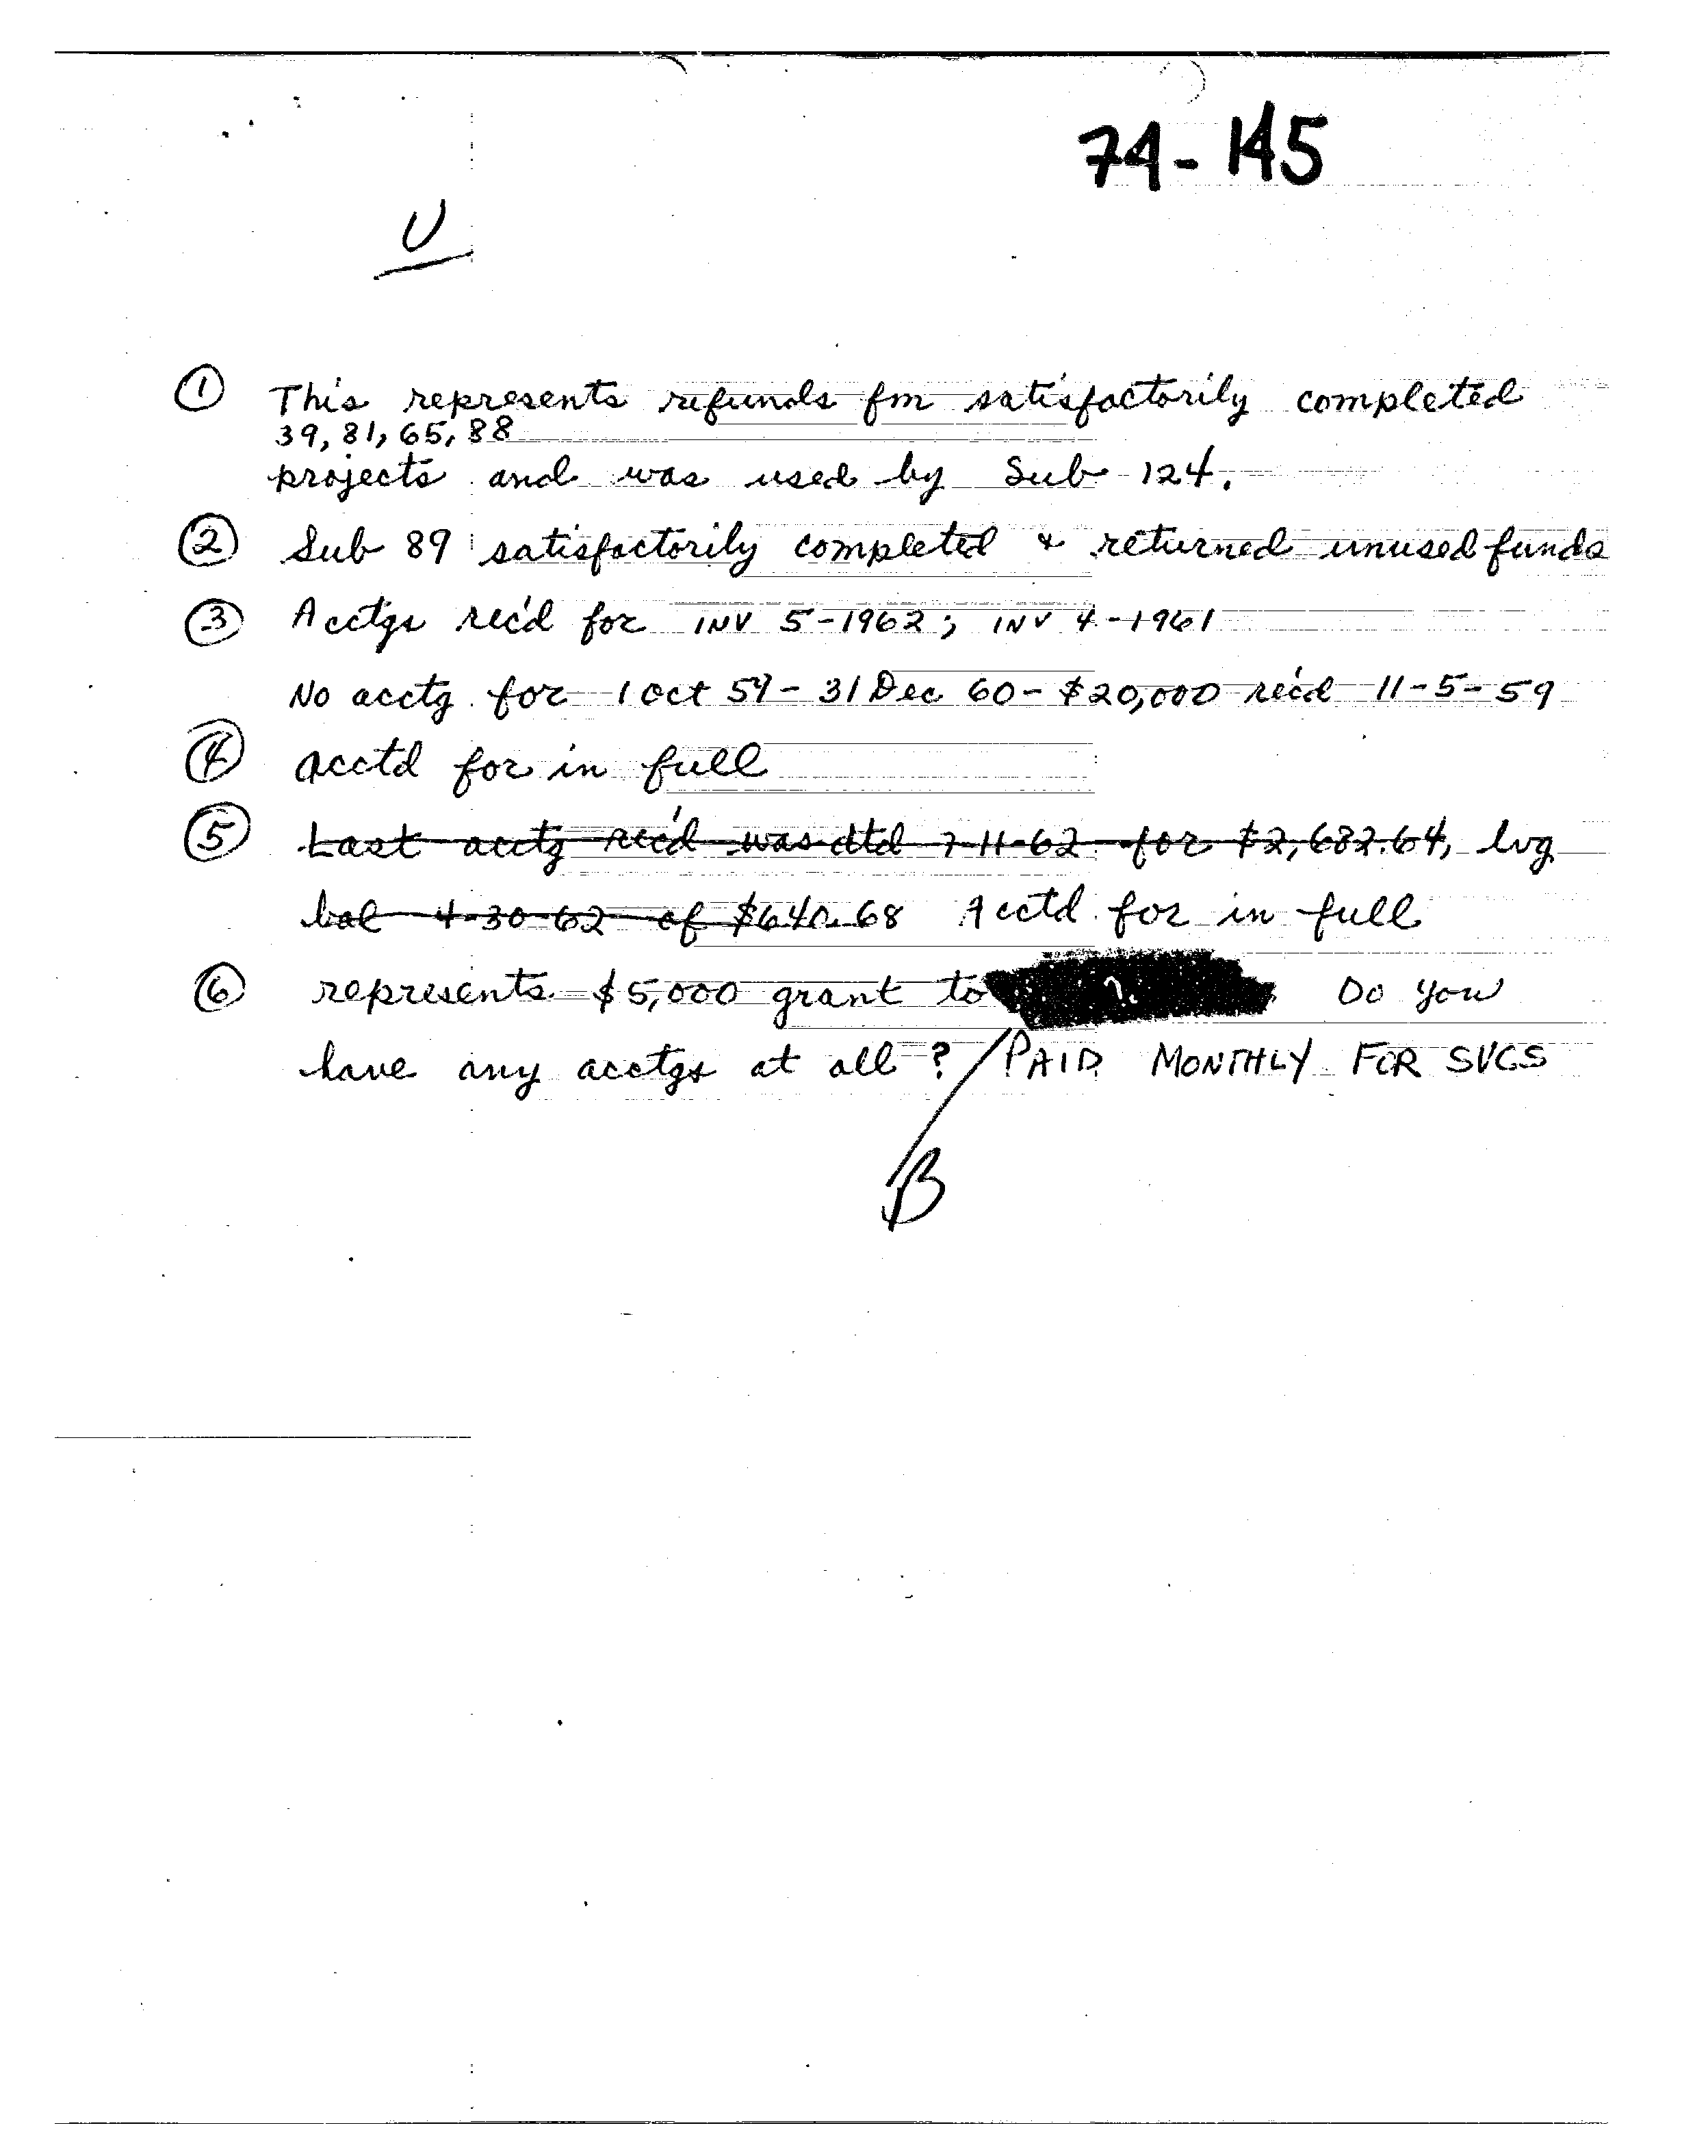 74-145
U
① This represents refunds fm satisfactorily completed
39, 81, 65, 88
projects and was used by Sub 124.
② Sub 89 satisfactorily completed & returned unused funds
③ Acctgs rec'd for INV 5-1962; INV 4-1961
No acctg for 1 Oct 59 - 31 Dec 60 - $20,000 rec'd 11-5-59
④ acctd for in full
⑤ Last acctg rec'd was dtd 7-11-62 for $2,682.64, lvg
bal 4-30-62 of $640.68 Acctd for in full
⑥ represents $5,000 grant to Do you
have any acctgs at all? / PAID MONTHLY FOR SVCS
B